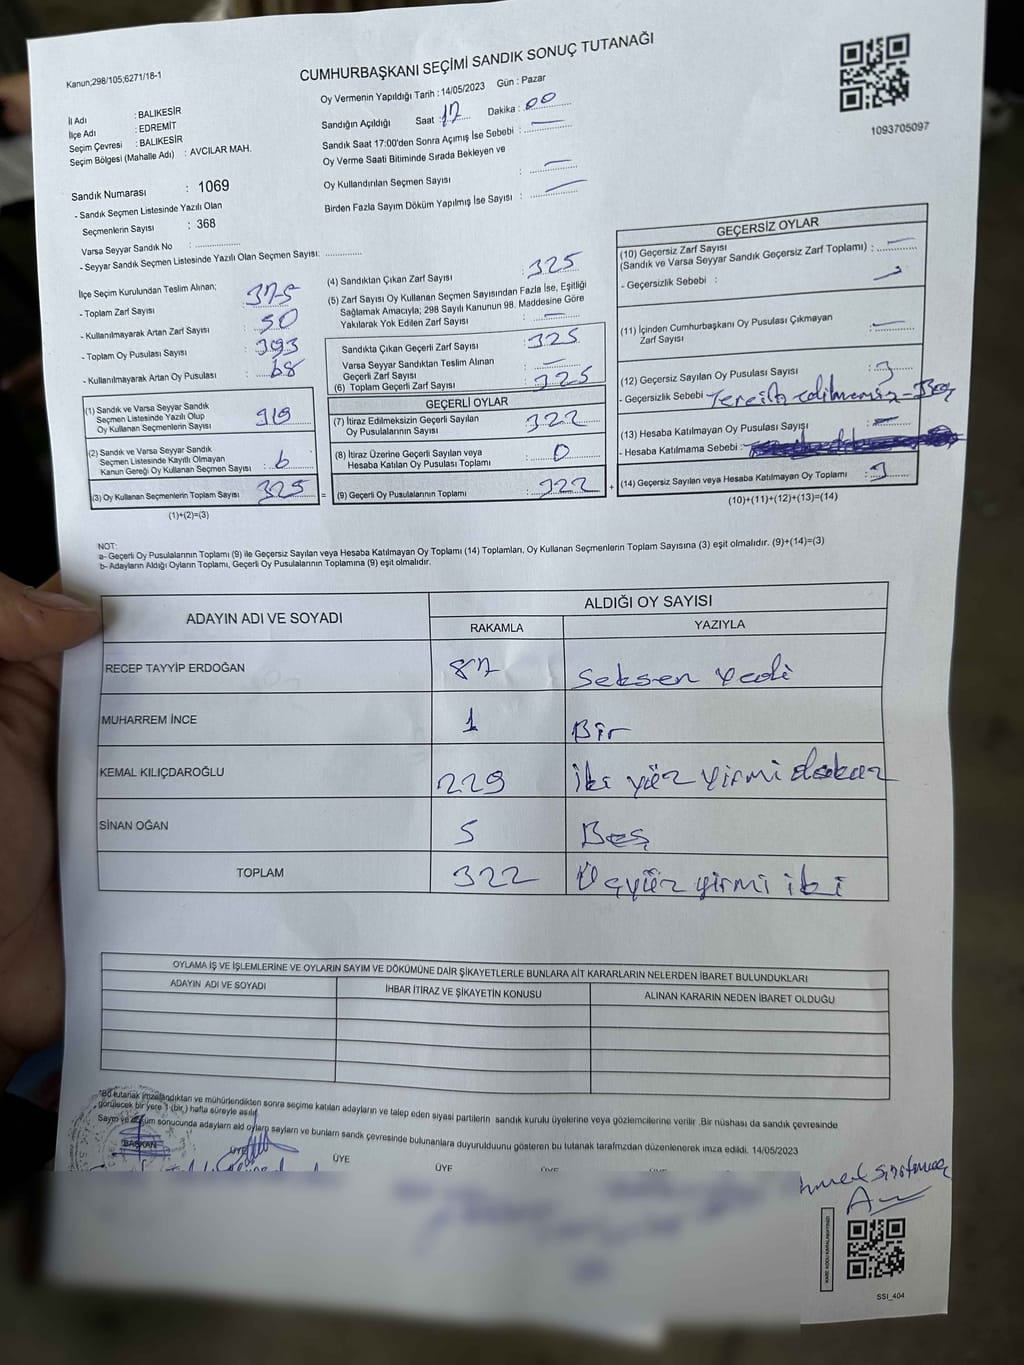 Kanun;298/105;6271/18-1
CUMHURBAŞKANI SEÇİMİ SANDIK SONUÇ TUTANAĞI
1093705097
İl Adı : BALIKESİR
İlçe Adı : EDREMİT
Seçim Çevresi : BALIKESİR
Seçim Bölgesi (Mahalle Adı) : AVCILAR MAH.
Sandık Numarası : 1069
- Sandık Seçmen Listesinde Yazılı Olan
Seçmenlerin Sayısı : 368
Varsa Seyyar Sandık No :
- Seyyar Sandık Seçmen Listesinde Yazılı Olan Seçmen Sayısı:
Oy Vermenin Yapıldığı Tarih : 14/05/2023 Gün : Pazar
Sandığın Açıldığı Saat : 17 Dakika : 00
Sandık Saat 17:00'den Sonra Açımış İse Sebebi : —
Oy Verme Saati Bitiminde Sırada Bekleyen ve
Oy Kullandırılan Seçmen Sayısı : —
Birden Fazla Sayım Döküm Yapılmış İse Sayısı : —
İlçe Seçim Kurulundan Teslim Alınan;
- Toplam Zarf Sayısı : 375
- Kullanılmayarak Artan Zarf Sayısı : 50
- Toplam Oy Pusulası Sayısı : 393
- Kullanılmayarak Artan Oy Pusulası : 68
(1) Sandık ve Varsa Seyyar Sandık
Seçmen Listesinde Yazılı Olup
Oy Kullanan Seçmenlerin Sayısı : 319
(2) Sandık ve Varsa Seyyar Sandık
Seçmen Listesinde Kayıtlı Olmayan
Kanun Gereği Oy Kullanan Seçmen Sayısı : 6
(3) Oy Kullanan Seçmenlerin Toplam Sayısı : 325 =
(1)+(2)=(3)
(4) Sandıktan Çıkan Zarf Sayısı : 325
(5) Zarf Sayısı Oy Kullanan Seçmen Sayısından Fazla İse, Eşitliği
Sağlamak Amacıyla; 298 Sayılı Kanunun 98. Maddesine Göre
Yakılarak Yok Edilen Zarf Sayısı : —
Sandıkta Çıkan Geçerli Zarf Sayısı : 325
Varsa Seyyar Sandıktan Teslim Alınan
Geçerli Zarf Sayısı : —
(6) Toplam Geçerli Zarf Sayısı : 325
GEÇERLİ OYLAR
(7) İtiraz Edilmeksizin Geçerli Sayılan
Oy Pusulalarının Sayısı : 322
(8) İtiraz Üzerine Geçerli Sayılan veya
Hesaba Katılan Oy Pusulası Toplamı : 0
(9) Geçerli Oy Pusulalarının Toplamı : 322 +
GEÇERSİZ OYLAR
(10) Geçersiz Zarf Sayısı
(Sandık ve Varsa Seyyar Sandık Geçersiz Zarf Toplamı) : —
- Geçersizlik Sebebi : —
(11) İçinden Cumhurbaşkanı Oy Pusulası Çıkmayan
Zarf Sayısı : —
(12) Geçersiz Sayılan Oy Pusulası Sayısı : 3
- Geçersizlik Sebebi : Tercih edilmemiş - Boş
(13) Hesaba Katılmayan Oy Pusulası Sayısı : —
- Hesaba Katılmama Sebebi :
(14) Geçersiz Sayılan veya Hesaba Katılmayan Oy Toplamı : 3
(10)+(11)+(12)+(13)=(14)
NOT:
a- Geçerli Oy Pusulalarının Toplamı (9) ile Geçersiz Sayılan veya Hesaba Katılmayan Oy Toplamı (14) Toplamları, Oy Kullanan Seçmenlerin Toplam Sayısına (3) eşit olmalıdır. (9)+(14)=(3)
b- Adayların Aldığı Oyların Toplamı, Geçerli Oy Pusulalarının Toplamına (9) eşit olmalıdır.
ADAYIN ADI VE SOYADI ALDIĞI OY SAYISI
RAKAMLA YAZIYLA
RECEP TAYYİP ERDOĞAN 87 Seksen Yedi
MUHARREM İNCE 1 Bir
KEMAL KILIÇDAROĞLU 229 İki yüz yirmi dokuz
SİNAN OĞAN 5 Beş
TOPLAM 322 Üçyüz yirmi iki
OYLAMA İŞ VE İŞLEMLERİNE VE OYLARIN SAYIM VE DÖKÜMÜNE DAİR ŞİKAYETLERLE BUNLARA AİT KARARLARIN NELERDEN İBARET BULUNDUKLARI
ADAYIN ADI VE SOYADI İHBAR İTİRAZ VE ŞİKAYETİN KONUSU ALINAN KARARIN NEDEN İBARET OLDUĞU
*Bu tutanak imzalandıktan ve mühürlendikten sonra seçime katılan adayların ve talep eden siyasi partilerin sandık kurulu üyelerine veya gözlemcilerine verilir .Bir nüshası da sandık çevresinde
görülecek bir yere 1 (bir ) hafta süreyle asılır.
Sayım ve döküm sonucunda adayların ald oyların sayların ve bunların sandk çevresinde bulunanlara duyurulduunu gösteren bu tutanak tarafmzdan düzenlenerek imza edildi. 14/05/2023
BAŞKAN ÜYE ÜYE ÜYE
SSI_404